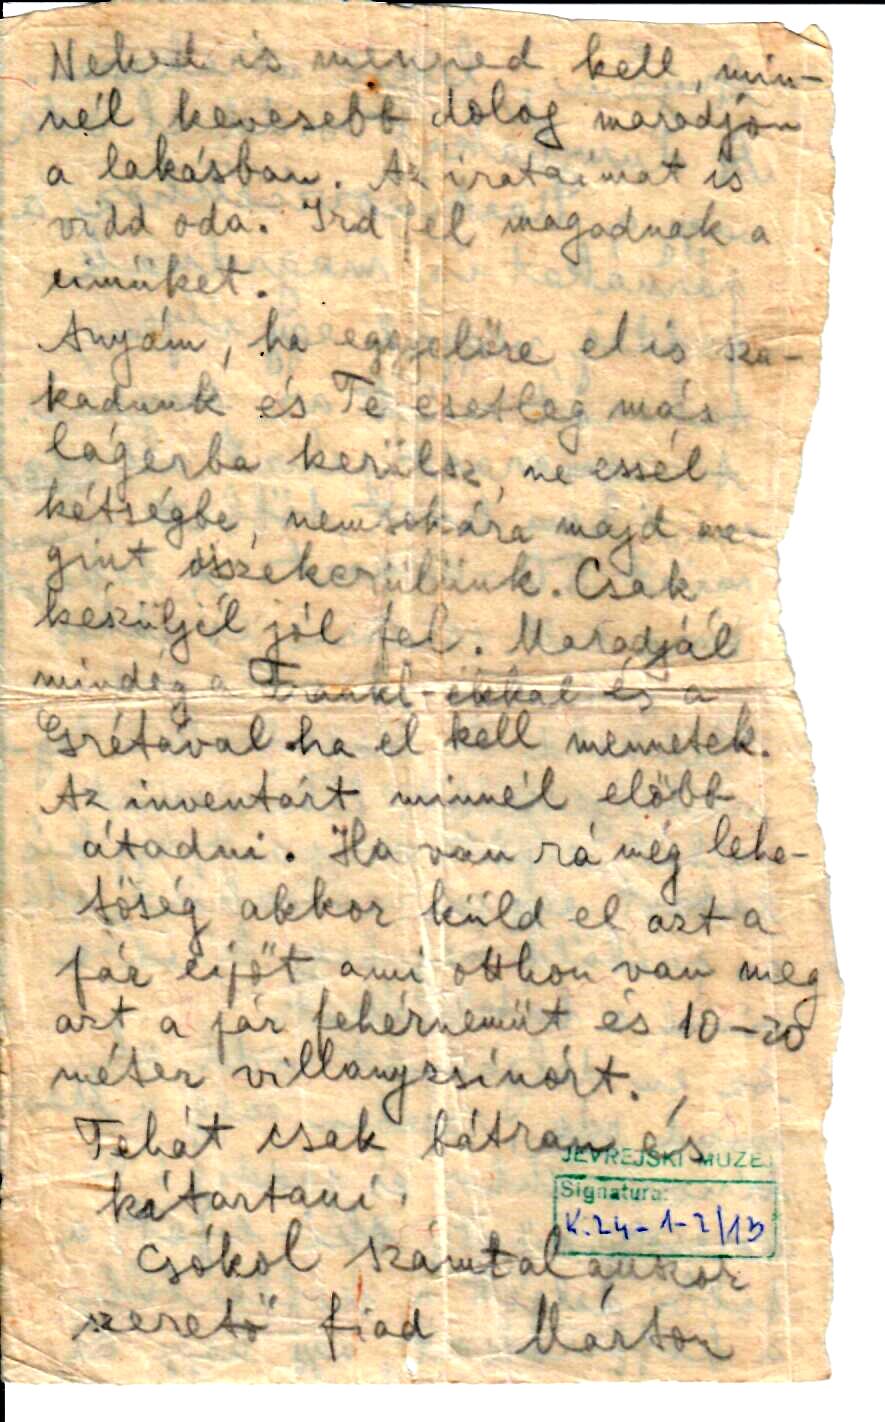 Neked is menned kell, min-
nél kevesebb dolog maradjon
a lakásban. Az irataimat is
vidd oda. Ird fel magadnak a
cimüket.
Anyám, ha eggyelőre el is sza-
kadunk és Te esetleg más
lágerba kerülsz, ne essél
kétségbe, nemsokára majd me-
gint összekerülünk. Csak
készüljél jól fel. Maradjál
mindég a Frankl-ékkal és a
Grétával ha el kell mennetek.
Az inventárt minnél előbb
átadni. Ha van rá még lehe-
tőség akkor küld el azt a
pár cipőt ami otthon van meg
azt a pár fehérnemüt és 10-20
méter villanyzsinórt.
Tehát csak bátran és
kitartani.
JEVREJSKI MUZEJ
Signatura:
K.24-1-2/13
Csókol számtalanszor
szerető fiad Márton